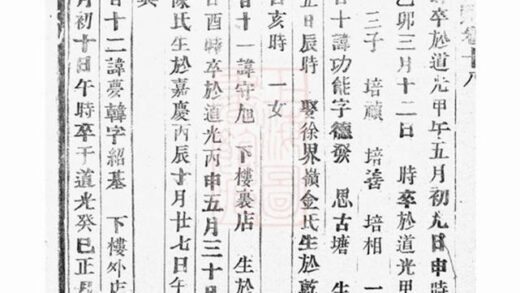 卷十八
時卒於道光甲午五月初九日申時
乙卯三月十二日 時卒於道光甲
三子 培頑 培善 培相 一
廿十諱功能字德發 思古塘 生
五日辰時 娶徐界嶺金氏生於乾
亥時 一女
廿十一諱守旭 下樓裏店 生於
日酉時卒於道光丙申五月三十日
陳氏生於嘉慶丙辰十月廿七日午
廿十二諱夢韓字紹基 下樓外店
月初十日午時卒于道光癸巳正月